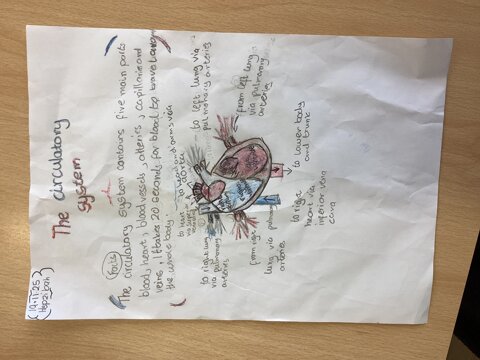 (19.11.25)
The circulatory
system
Facts
The circulatory system contains five main parts
blood, heart, blood vessels, arteries, capillaries and
veins, It takes 20 seconds for blood to travel around
the whole body.
to head and arms via
aorta
to left lung via
pulmonary arteries
from left lung
via pulmonary
arteries
to lower body
and trunk
to right
heart via
inferior vena
cava
from right
lung via pulmonary
arteries
to right lung
via pulmonary
arteries